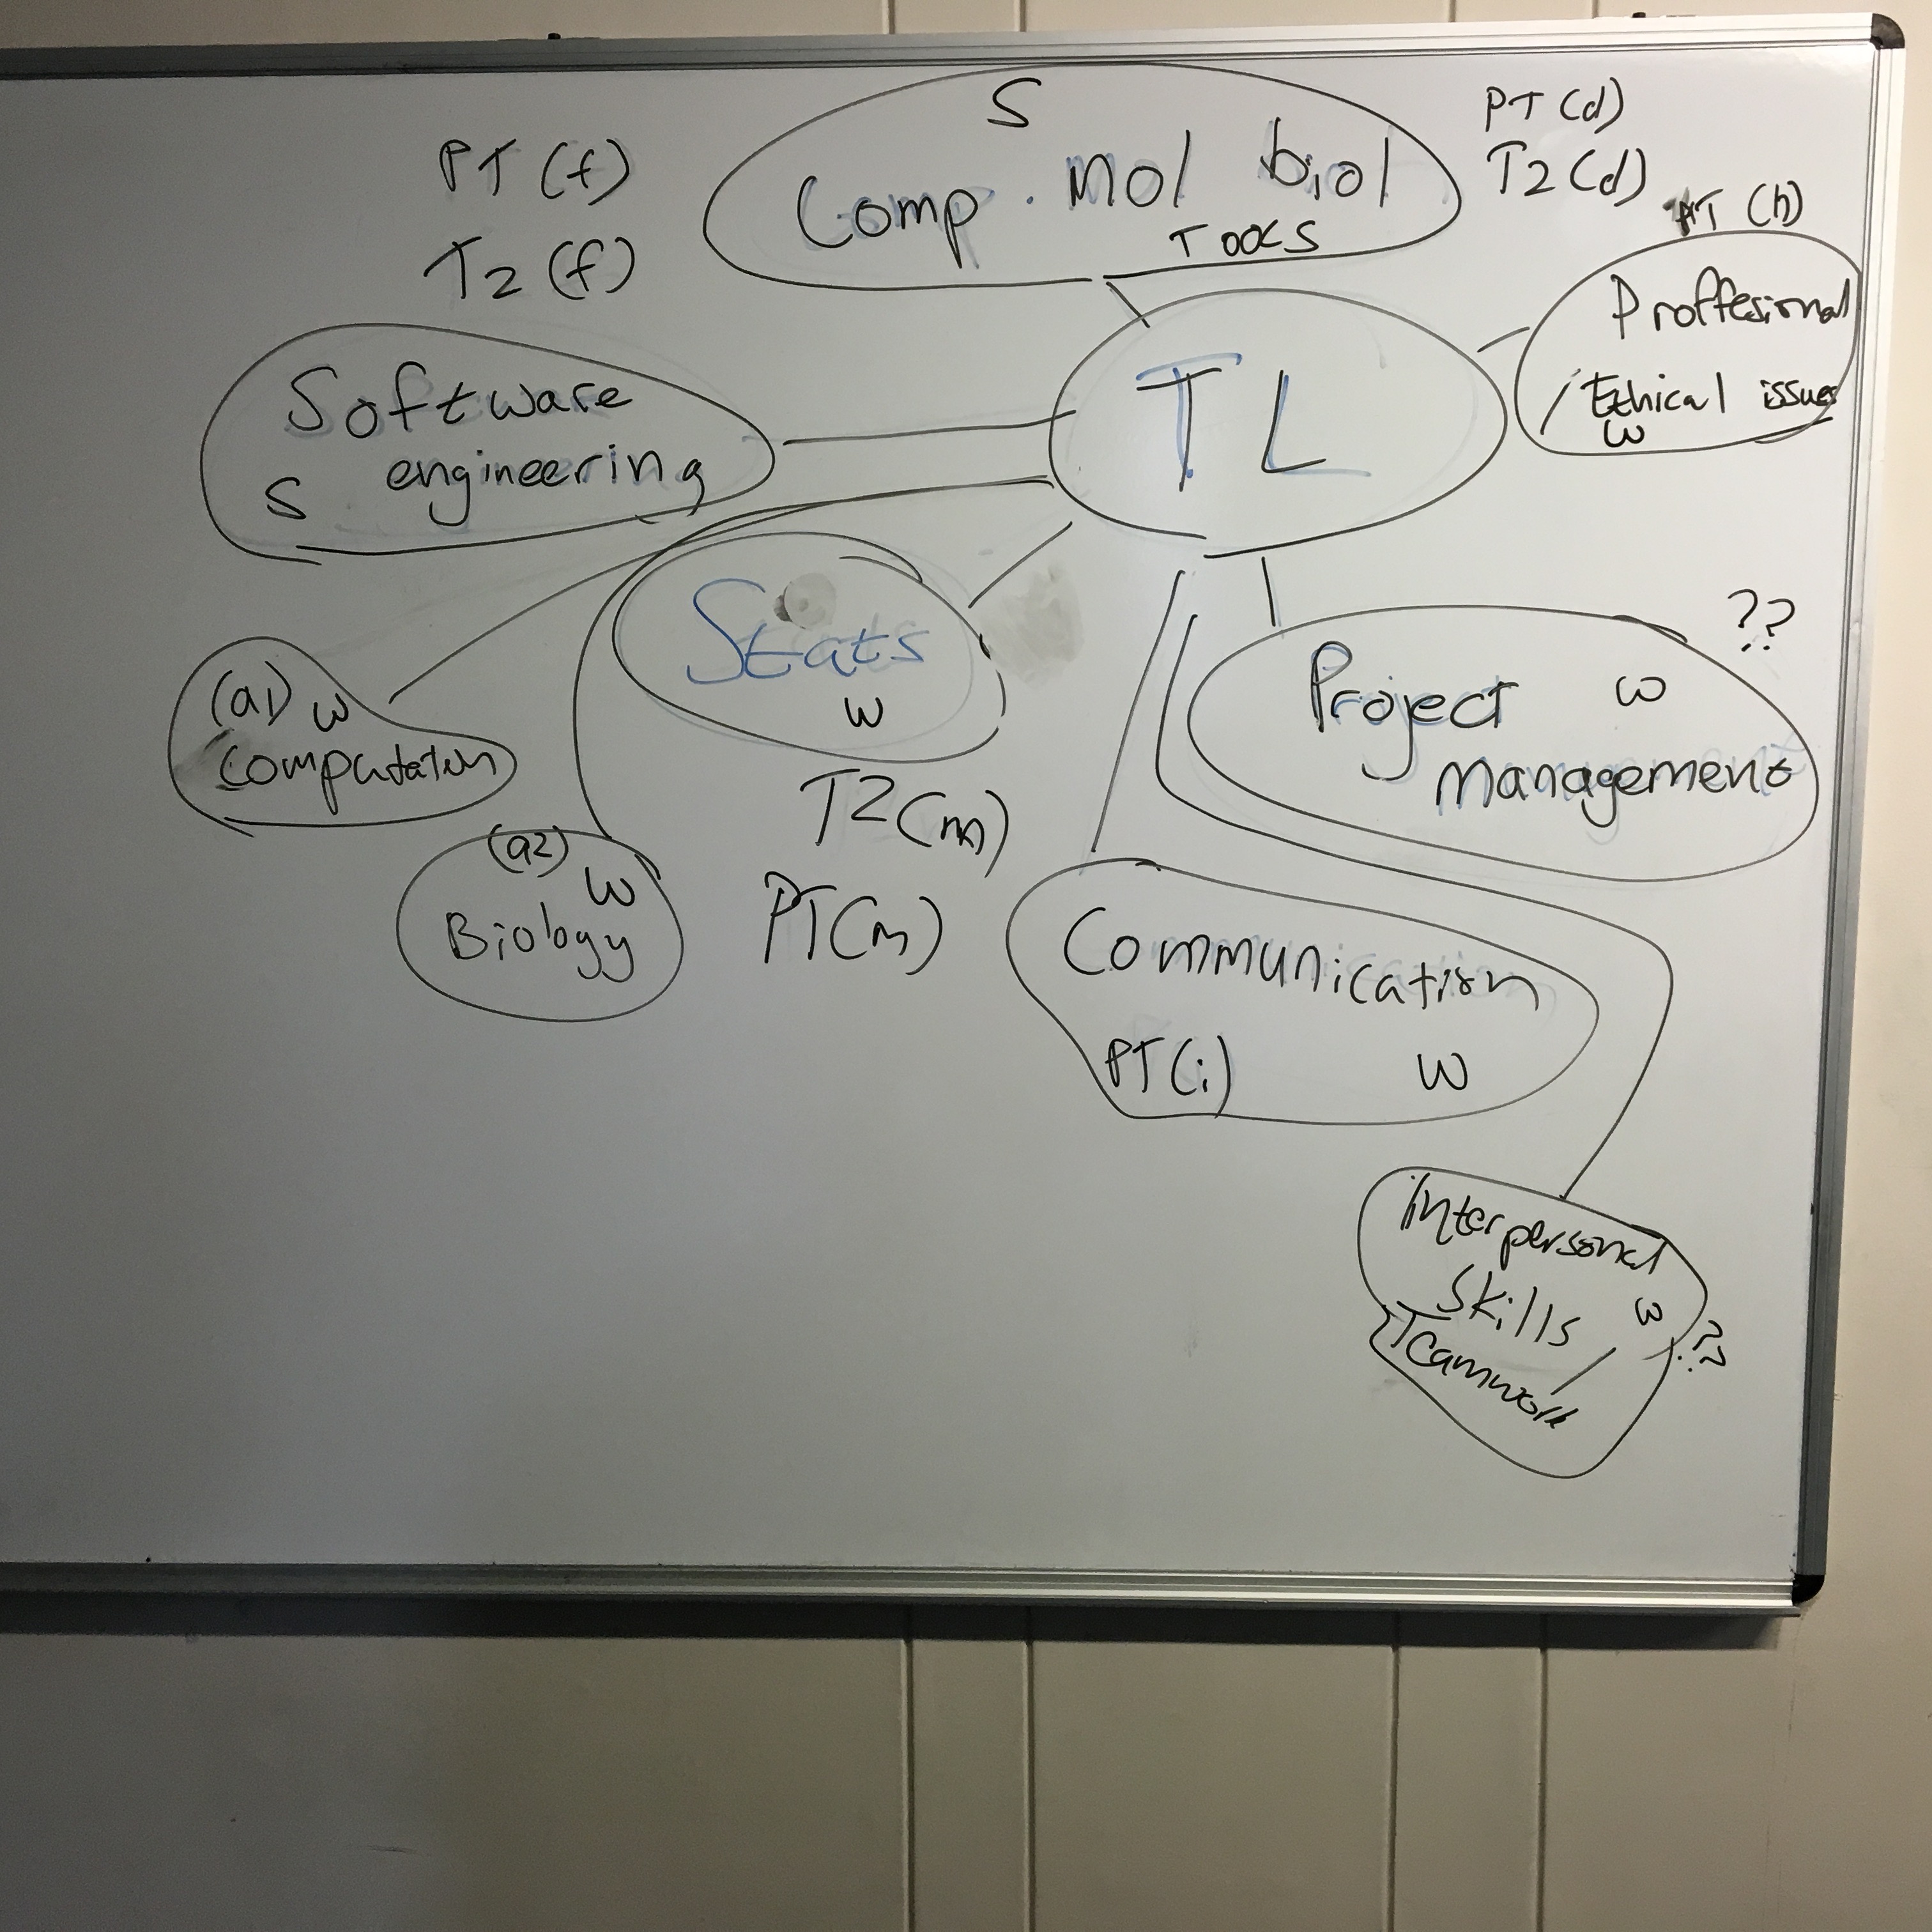 S
Comp. mol biol
TOOLS
PT (d)
T2 (d)
PT (f)
T2 (f)
PT (h)
Proffesional
/ Ethical issues
w
TL
Software
engineering
S
Stats
w
T2 (m)
PT (m)
(a1) w
Computation
(a2)
w
Biology
??
Project w
Management
Communication
PT (i) w
Interpersonal
Skills w
/
Teamwork
??